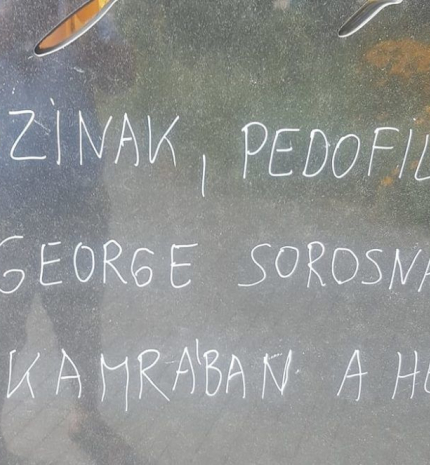 ZINAK, PEDOFIL
GEORGE SOROSNA
KAMRÁBAN A HO